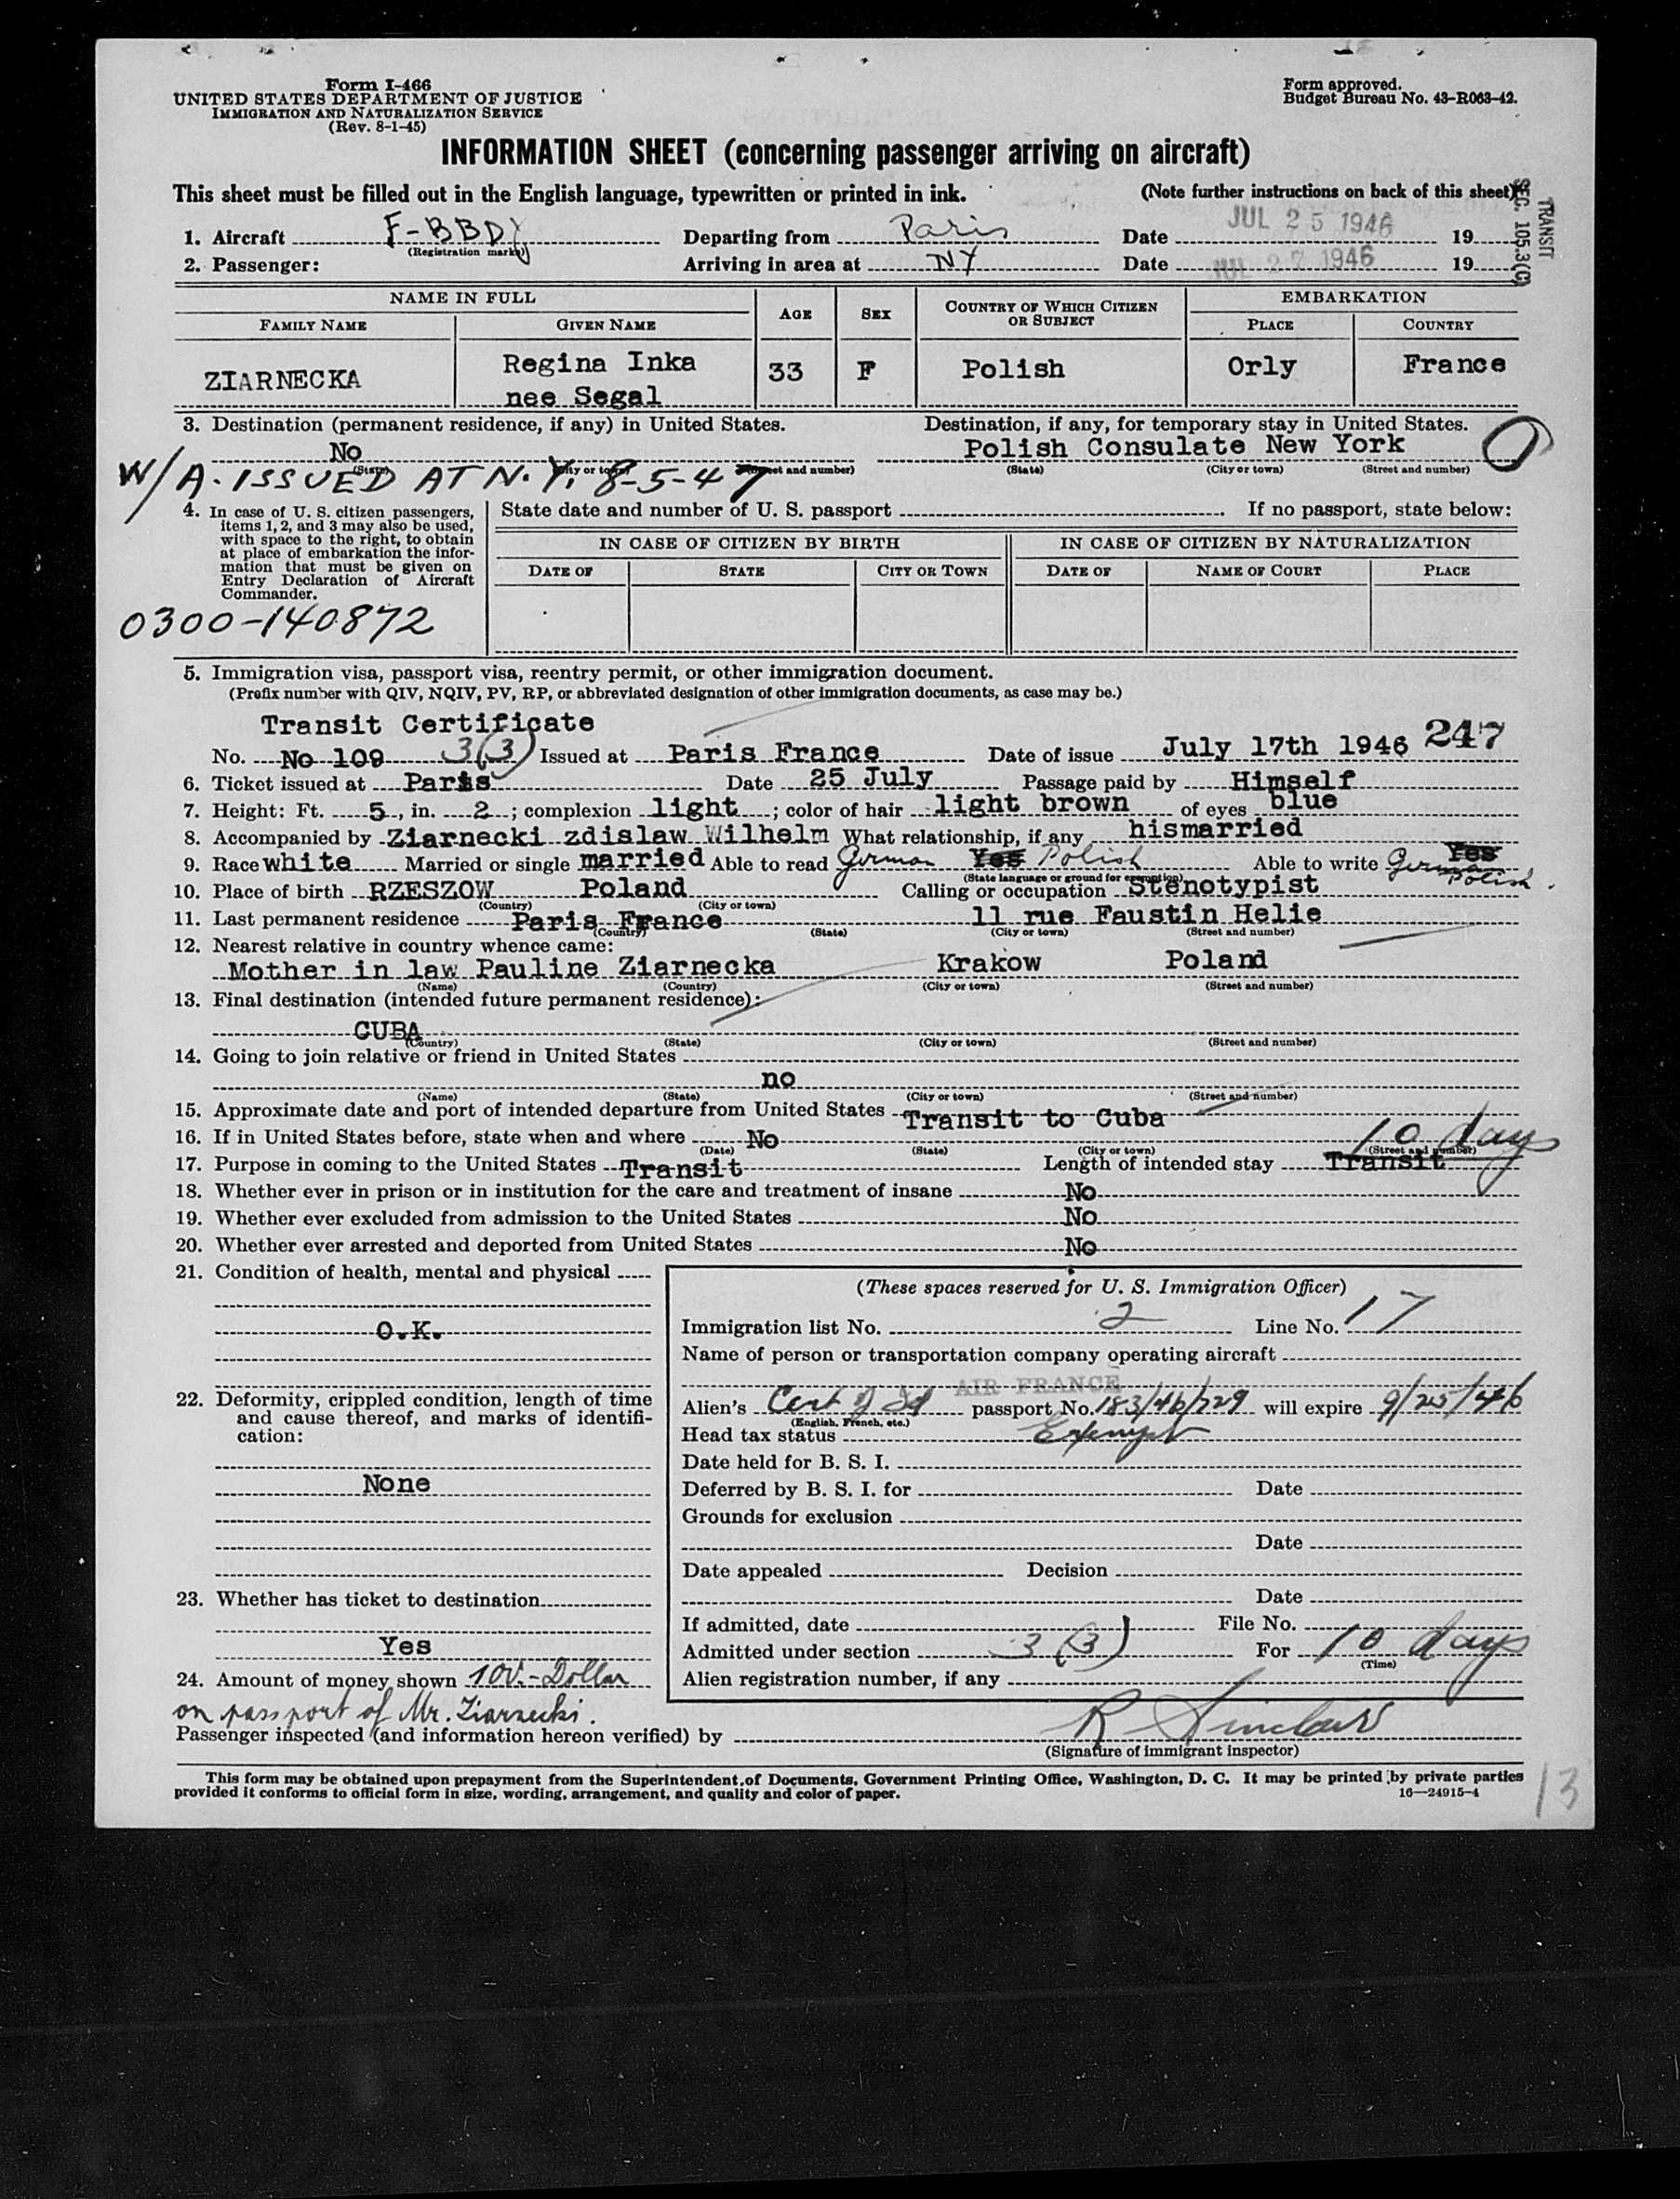 Form I-466
UNITED STATES DEPARTMENT OF JUSTICE
IMMIGRATION AND NATURALIZATION SERVICE
(Rev. 8-1-45)
Form approved.
Budget Bureau No. 43-R063-42.
INFORMATION SHEET (concerning passenger arriving on aircraft)
This sheet must be filled out in the English language, typewritten or printed in ink. (Note further instructions on back of this sheet)
TRANSIT
SEC. 105.3(C)
1. Aircraft F-BBDY Departing from Paris Date JUL 25 1946 19
(Registration marks)
2. Passenger: Arriving in area at NY Date JUL 27 1946 19
NAME IN FULL AGE SEX COUNTRY OF WHICH CITIZEN OR SUBJECT EMBARKATION
FAMILY NAME GIVEN NAME PLACE COUNTRY
ZIARNECKA Regina Inka 33 F Polish Orly France
nee Segal
3. Destination (permanent residence, if any) in United States. Destination, if any, for temporary stay in United States.
No Polish Consulate New York
(State) (City or town) (Street and number) (State) (City or town) (Street and number)
W/A. ISSUED AT N.Y. 8-5-47
4. In case of U. S. citizen passengers, items 1, 2, and 3 may also be used, with space to the right, to obtain at place of embarkation the information that must be given on Entry Declaration of Aircraft Commander.
State date and number of U. S. passport . If no passport, state below:
IN CASE OF CITIZEN BY BIRTH IN CASE OF CITIZEN BY NATURALIZATION
DATE OF STATE CITY OR TOWN DATE OF NAME OF COURT PLACE
0300-140872
5. Immigration visa, passport visa, reentry permit, or other immigration document.
(Prefix number with QIV, NQIV, PV, RP, or abbreviated designation of other immigration documents, as case may be.)
Transit Certificate 247
No. No 109 3(3) Issued at Paris France Date of issue July 17th 1946
6. Ticket issued at Paris Date 25 July Passage paid by Himself
7. Height: Ft. 5, in. 2; complexion light; color of hair light brown of eyes blue
8. Accompanied by Ziarnecki zdislaw Wilhelm What relationship, if any hismarried
9. Race white Married or single married Able to read German Yes Polish Able to write German Yes Polish.
(State language or ground for exemption)
10. Place of birth RZESZOW Poland Calling or occupation Stenotypist
(Country) (City or town)
11. Last permanent residence Paris France 11 rue Faustin Helie
(Country) (State) (City or town) (Street and number)
12. Nearest relative in country whence came:
Mother in law Pauline Ziarnecka Krakow Poland
(Name) (Country) (City or town) (Street and number)
13. Final destination (intended future permanent residence):
CUBA
(Country) (State) (City or town) (Street and number)
14. Going to join relative or friend in United States
no
(Name) (State) (City or town) (Street and number)
15. Approximate date and port of intended departure from United States Transit to Cuba
16. If in United States before, state when and where No
(Date) (State) (City or town) (Street and number)
17. Purpose in coming to the United States Transit Length of intended stay Transit 10 days
18. Whether ever in prison or in institution for the care and treatment of insane No
19. Whether ever excluded from admission to the United States No
20. Whether ever arrested and deported from United States No
21. Condition of health, mental and physical
O.K.
22. Deformity, crippled condition, length of time and cause thereof, and marks of identification:
None
23. Whether has ticket to destination
Yes
24. Amount of money shown 100.- Dollar
on passport of Mr. Ziarnecki.
(These spaces reserved for U. S. Immigration Officer)
Immigration list No. 2 Line No. 17
Name of person or transportation company operating aircraft
AIR FRANCE
Alien's Cert of Id passport No. 183/46/729 will expire 9/25/46
(English, French, etc.)
Head tax status Exempt
Date held for B. S. I.
Deferred by B. S. I. for Date
Grounds for exclusion
Date
Date appealed Decision
Date
If admitted, date File No.
Admitted under section 3(3) For 10 days
(Time)
Alien registration number, if any
Passenger inspected (and information hereon verified) by R Sinclair
(Signature of immigrant inspector)
This form may be obtained upon prepayment from the Superintendent of Documents, Government Printing Office, Washington, D. C. It may be printed by private parties
provided it conforms to official form in size, wording, arrangement, and quality and color of paper. 16—24915-4
13